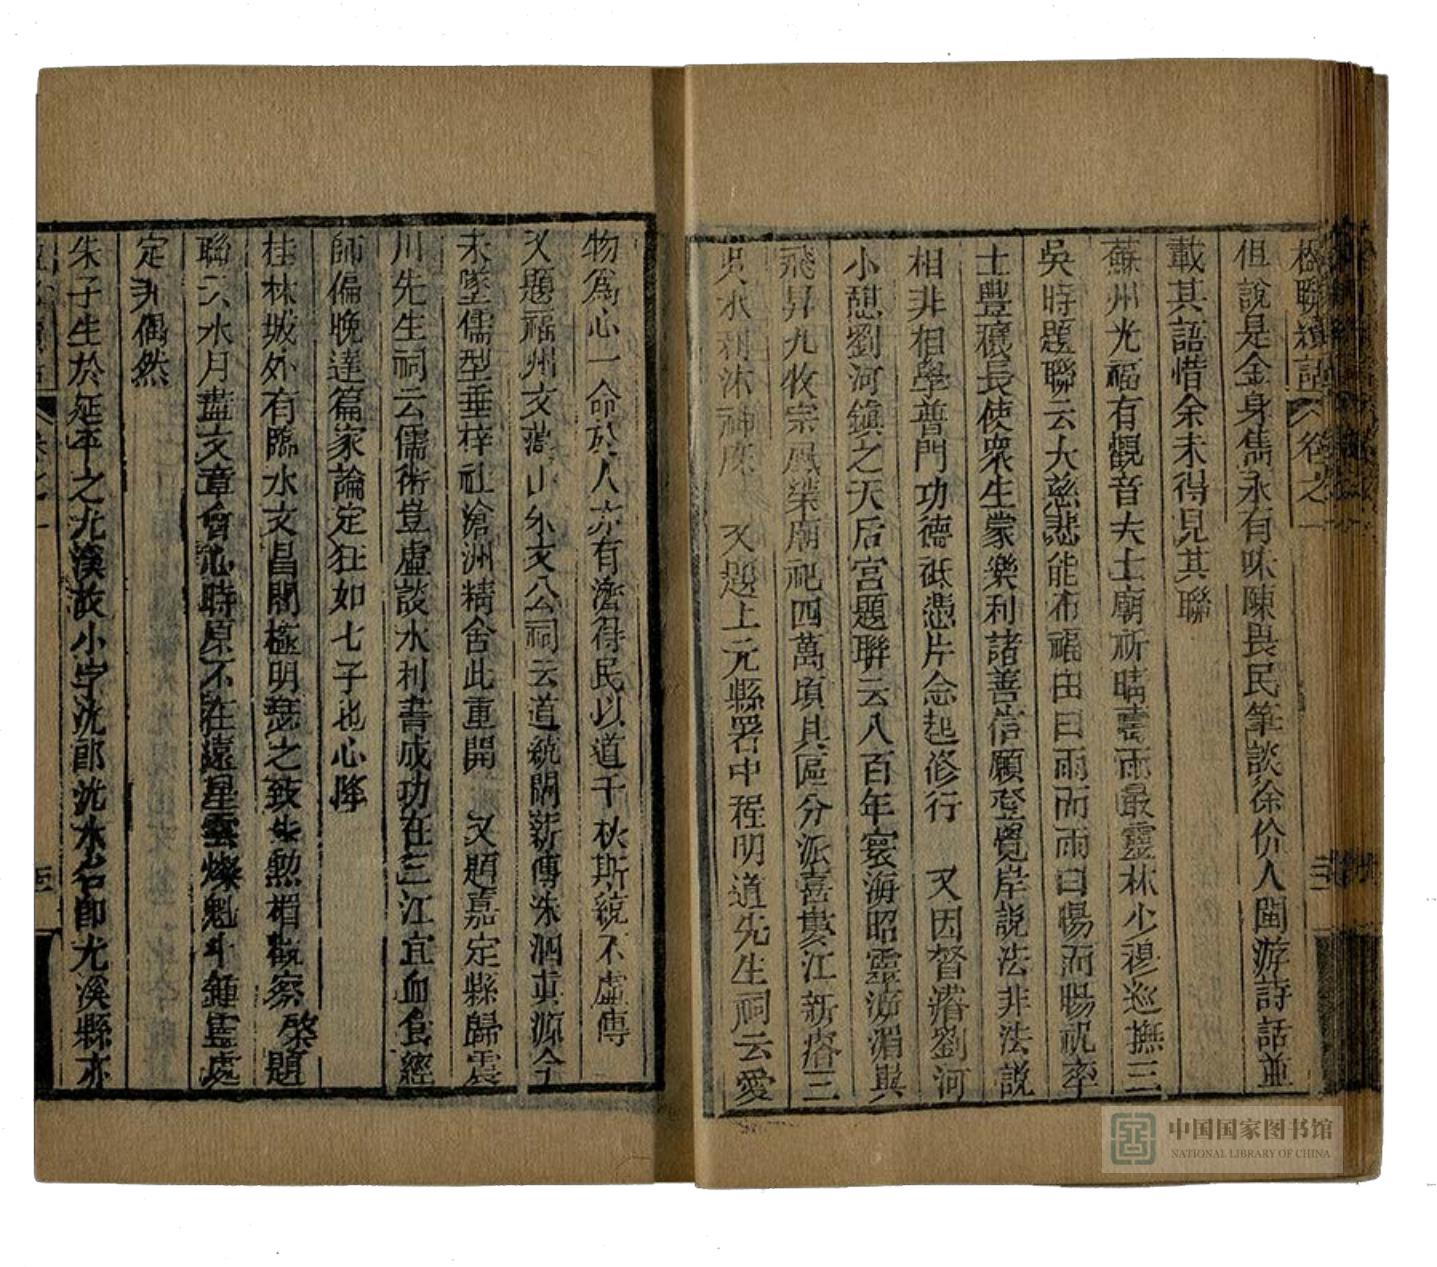 楹聯續話 卷之一
但說是金身雋永有味陳畏民筆談徐价人閩游詩話並
載其語惜余未得見其聯
蘇州光福有觀音大士廟祈晴禱雨最靈林少穆巡撫三
吳時題聯云大慈悲能布福田曰雨而雨曰暘而暘祝率
土豐穰長使衆生蒙樂利諸善信願登覺岸說法非法說
相非相學普門功德祗憑片念起修行 又因督濬劉河
小憩劉河鎮之天后宮題聯云八百年寰海昭靈溯湄與
飛昇九牧宗風榮廟祀四萬頃具區分派喜婁江新濬三
吳水利沐神庥 又題上元縣署中程明道先生祠云愛
物爲心一命於人亦有濟得民以道千秋斯統不虛傳
又題福州文藻山朱文公祠云道統闢薪傳洙泗眞源今
未墜儒型垂梓社滄洲精舍此重開 又題嘉定縣歸震
川先生祠云儒術豈虛談水利書成功在三江宜血食經
師偏晚達篇家論定狂如七子也心降
桂林城外有臨水文昌閣極明瑟之致朱勲楣觀察棨題
聯云水月盡文章會心時原不在遠星雲燦魁斗鍾靈處
定非偶然
朱子生於延平之尤溪故小字沈郎沈水名即尤溪縣亦
五
中国国家图书馆
NATIONAL LIBRARY OF CHINA